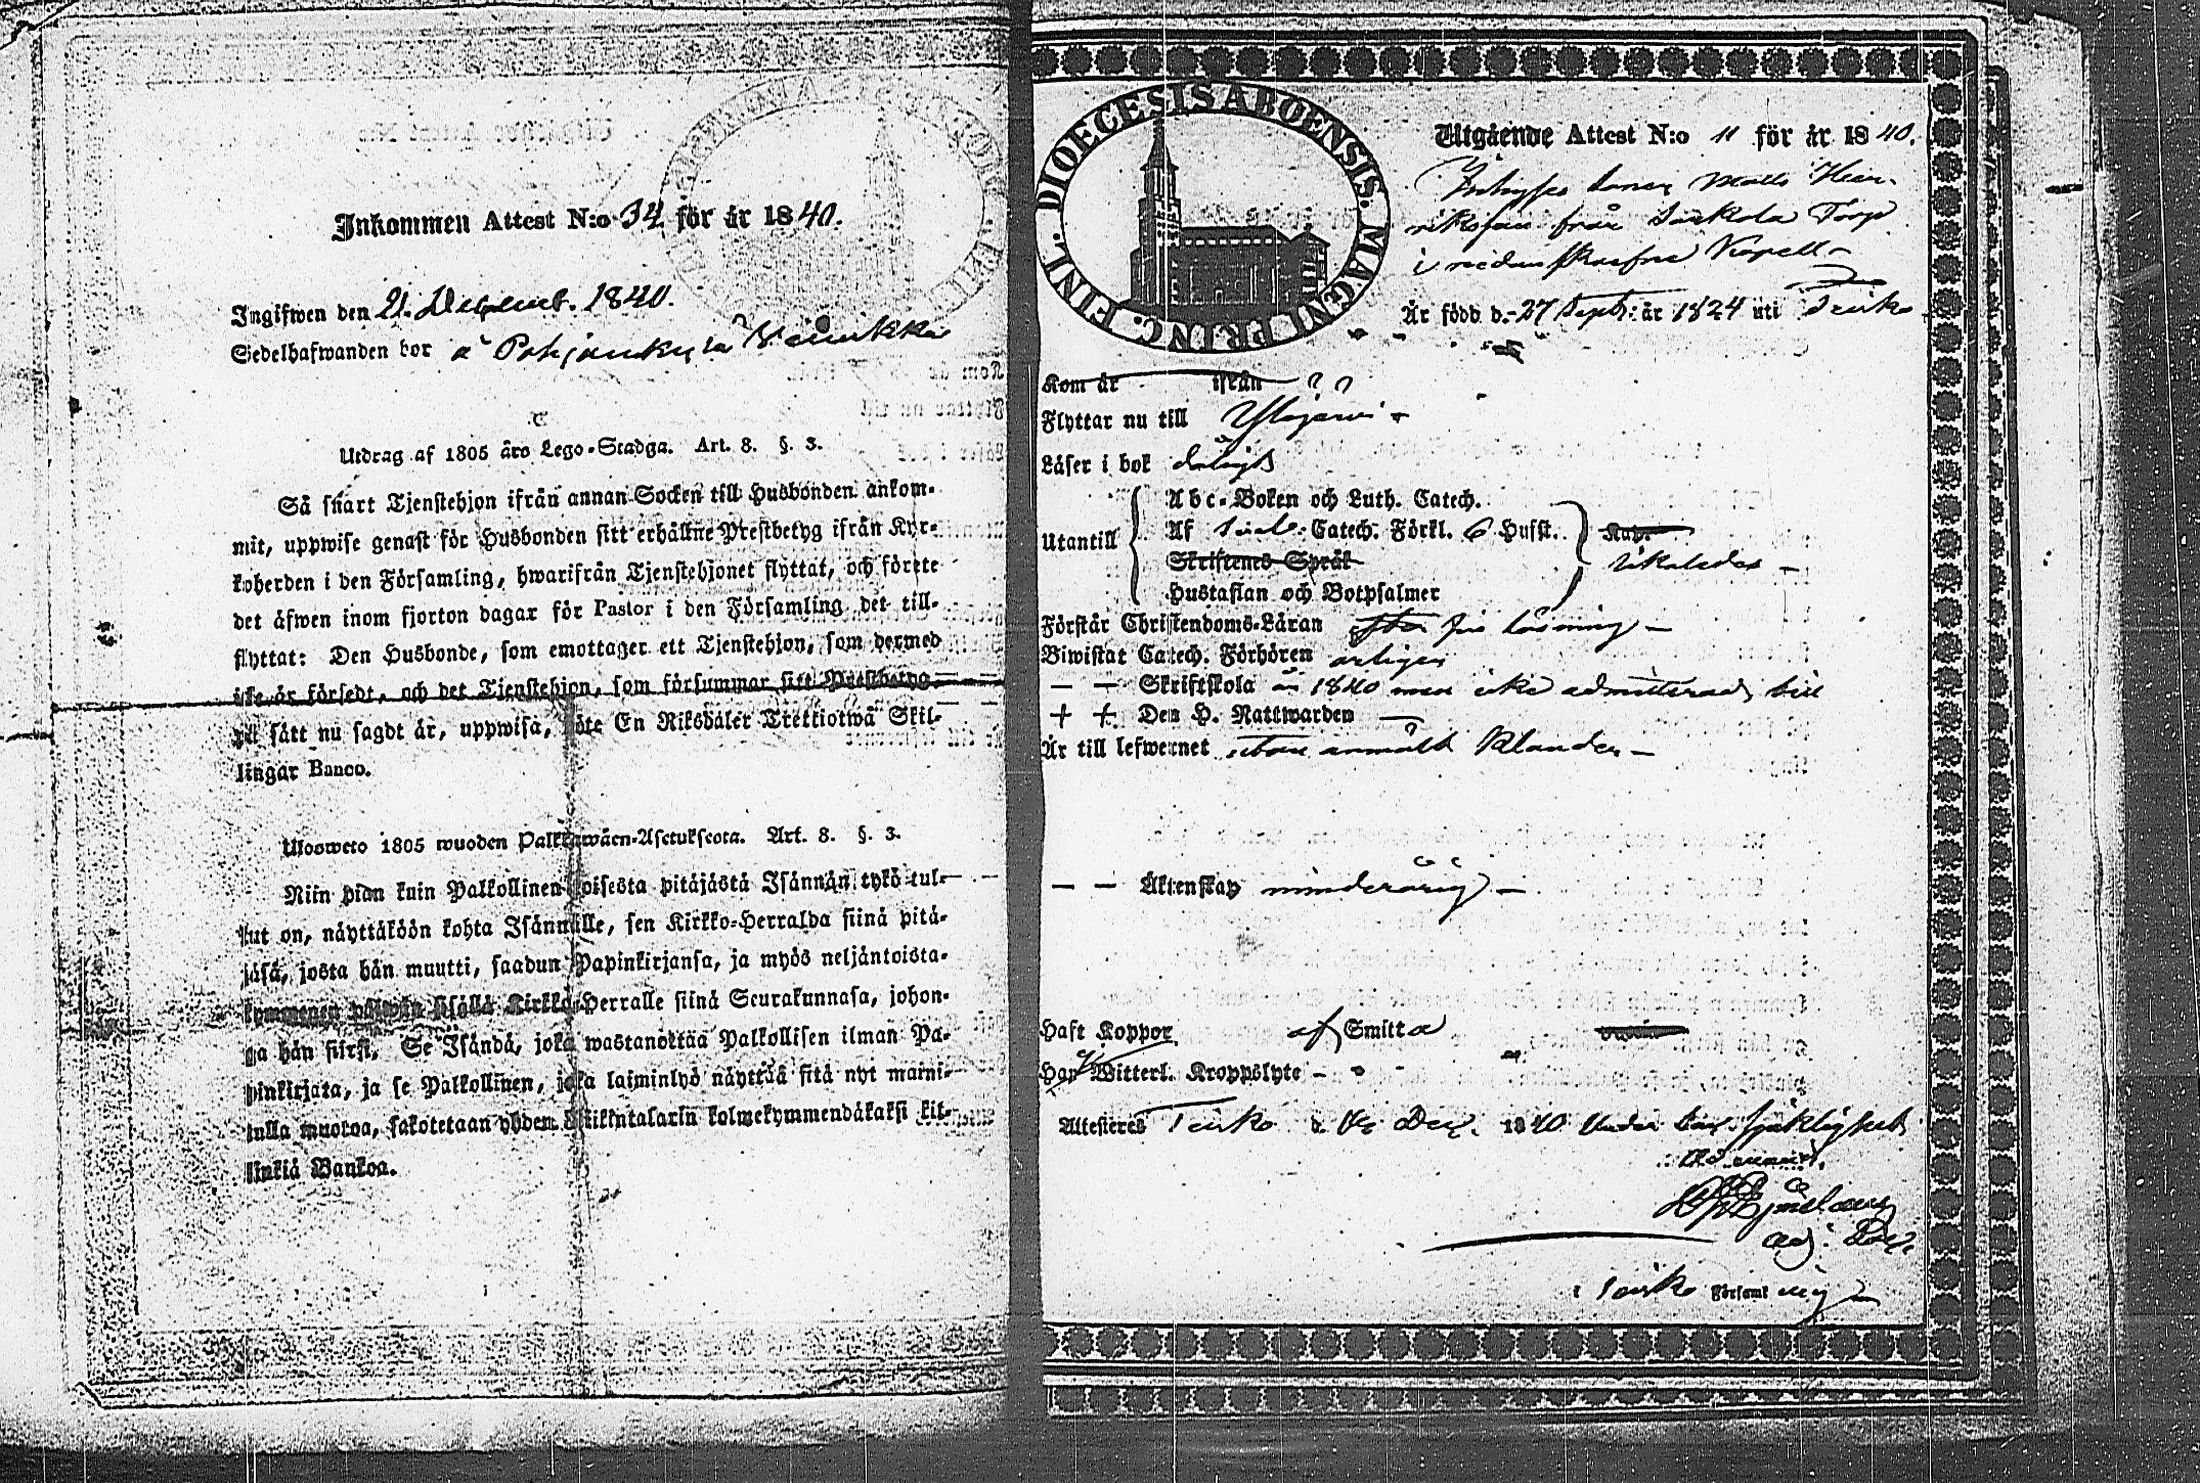 Inkommen Attest N:o 34 för år 1840.
Ingifwen den 21 Decemb. 1840.
Sedelhafwanden bor å Pohjankylä
Utdrag af 1805 års Lego-Stadga. Art. 8. §. 3.
Så snart Tjenstehjon ifrån annan Socken till Husbonden ankom-
mit, uppwise genast för Husbonden sitt erhållne Prestbetyg ifrån Kyr-
koherden i den Församling, hwarifrån Tjenstehjonet flyttat, och förete
det äfwen inom fjorton dagar för Pastor i den Församling det till-
flyttat: Den Husbonde, som emottager ett Tjenstehjon, som dermed
icke är försedt, och det Tjenstehjon, som försummar sitt Prestbetyg
på sätt nu sagdt är, uppwisa, böte En Riksdaler Trettiotwå Skil-
lingar Banco.
Ulosweto 1805 wuoden Palkkawäen-Asetuksesta. Art. 8. §. 3.
Niin pian kuin Palkollinen toisesta pitäjästä Isännän tykö tul-
lut on, näyttäköön kohta Isännälle, sen Kirkko-Herralda siinä pitä-
jäsä, josta hän muutti, saadun Papinkirjansa, ja myös neljäntoista-
kymmenen päiwän sisällä Kirkko-Herralle siinä Seurakunnasa, johon-
ga hän siirsi. Se Isändä, joka wastanottaa Palkollisen ilman Pa-
pinkirjata, ja se Palkollinen, joka laiminlyö näyttää sitä nyt maini-
tulla muotoa, sakotetaan yhden Riikintalarin kolmekymmendäkaksi kil-
linkiä Bankoa.
FINL. DIOECESIS ABOENSIS. MAGNI PRINC.
Utgående Attest N:o 11 för år 1840.
sonen Matts Hen-
riksson från Torp
i Kapell
Är född d. 27 Sept: år 1824 uti Teisko
Kom år ifrån
Flyttar nu till Ylöjärvi
Läser i bok dåligt
Utantill
Abc-Boken och Luth. Catech.
Af Catech. Förkl. 6 Hufst.
Skriftenes Språk
Hustaflan och Botpsalmer
Förstår Christendoms-Läran efter sin läsning
Biwistat Catech. Förhören årligen
— — Skriftskola år 1840 men icke admitterad till
Den H. Nattwarden
Är till lefwernet utan anmält klander
— — Äktenskap minderårig
Haft Koppor af Smitta
Har Witterl. Kroppslyte
Attesteras Teisko d. Dec. 1840 Under
adj.
i Teisko Församling